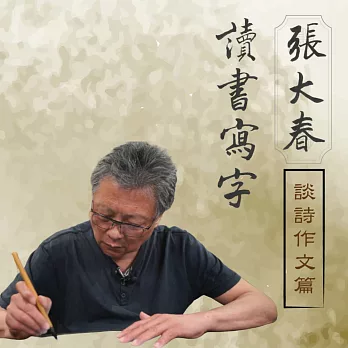 張大春
讀書寫字
談詩作文篇